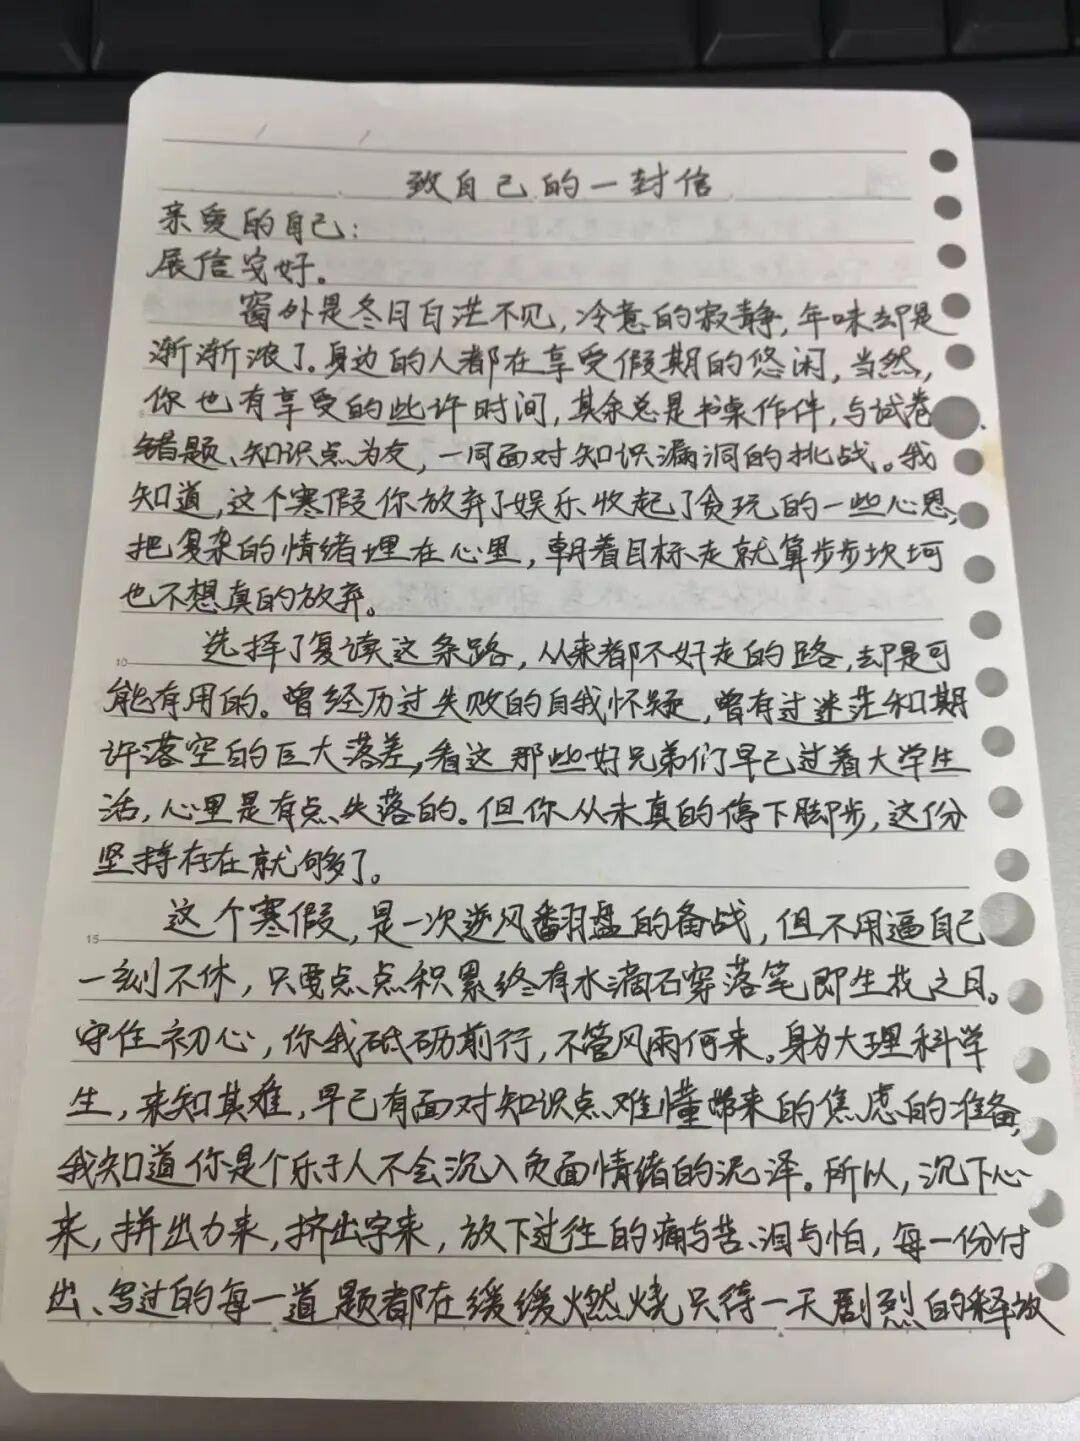 致自己的一封信
亲爱的自己：
展信安好。
窗外是冬日白茫不见，冷意的寂静，年味却是
渐渐浓了。身边的人都在享受假期的悠闲，当然，
你也有享受的些许时间，其余总是书桌作伴，与试卷、
错题、知识点为友，一同面对知识漏洞的挑战。我
知道，这个寒假你放弃了娱乐收起了贪玩的一些心思，
把复杂的情绪埋在心里，朝着目标走就算步步坎坷
也不想真的放弃。
10
选择了复读这条路，从来都不好走的路，却是可
能有用的。曾经历过失败的自我怀疑，曾有过迷茫和期
许落空的巨大落差，看这那些好兄弟们早已过着大学生
活，心里是有点失落的。但你从未真的停下脚步，这份
坚持存在就够了。
15
这个寒假，是一次逆风翻盘的备战，但不用逼自己
一刻不休，只要点点积累终有水滴石穿落笔即生花之日。
守住初心，你我砥砺前行，不管风雨何来。身为大理科学
生，来知其难，早已有面对知识点难懂带来的焦虑的准备，
我知道你是个乐于人不会沉入负面情绪的泥泽。所以，沉下心
来，拼出力来，挤出字来，放下过往的痛与苦、泪与怕，每一份付
出、写过的每一道题都在缓缓燃烧只待一天剧烈的释放